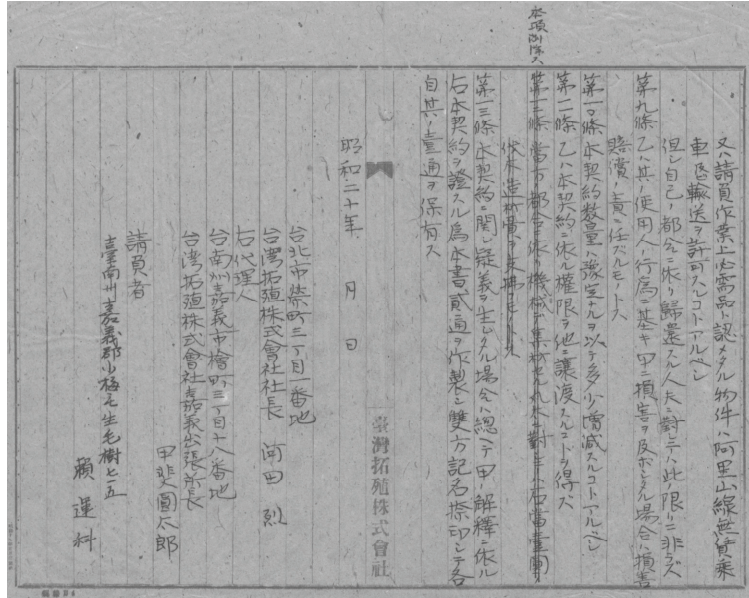 本項削除ス
又ハ請負作業上必需品ト認メタル物件ハ阿里山線無賃乘
車及輸送ヲ許可スルコトアルベシ
但シ自己ノ都合ニ依リ歸還スル人夫ニ對シテハ此ノ限リニ非ラズ
第九條 乙ハ其ノ使用人ノ行爲ニ基キ甲ニ損害ヲ及ボシタル場合ハ損害
賠償ノ責ニ任ズルモノトス
第一〇條 本契約數量ハ豫定ナルヲ以テ多少增減スルコトアルベシ
第一一條 乙ハ本契約ニ依ル權限ヲ他ニ讓渡スルコトヲ得ズ
第一二條 當方都合ニ依リ機械デ集材セル丸太ニ對シテハ石當壹圓
伐木造材費ヲ支拂フモノトス
第一三條 本契約ニ關シ疑義ヲ生ジタル場合ハ總ヘテ甲ノ解釋ニ依ル
右本契約ヲ證スル爲本書貳通ヲ作製シ雙方記名捺印シテ各
自其ノ壹通ヲ保有ス
臺灣拓殖株式會社
昭和二十年 月 日
台北市榮町三丁目一番地
台灣拓殖株式會社社長 河田 烈
右代理人
台南州嘉義市檜町三丁目十八番地
台灣拓殖株式會社嘉義出張所長
甲斐圓太郎
請負者
臺南州嘉義郡小梅庄生毛樹七一五
賴 運 科